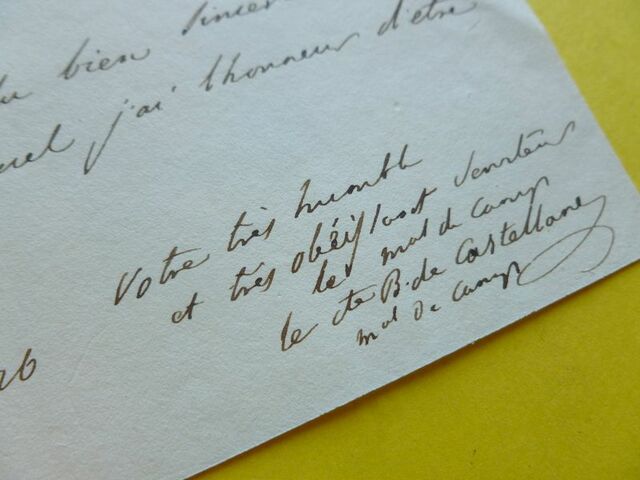 du bien sincer
uel j'ai l'honneur d'être
Votre très humble
et très obéissant serviteur
le mal de camp
le cte B. de Castellane
mal de camp
26